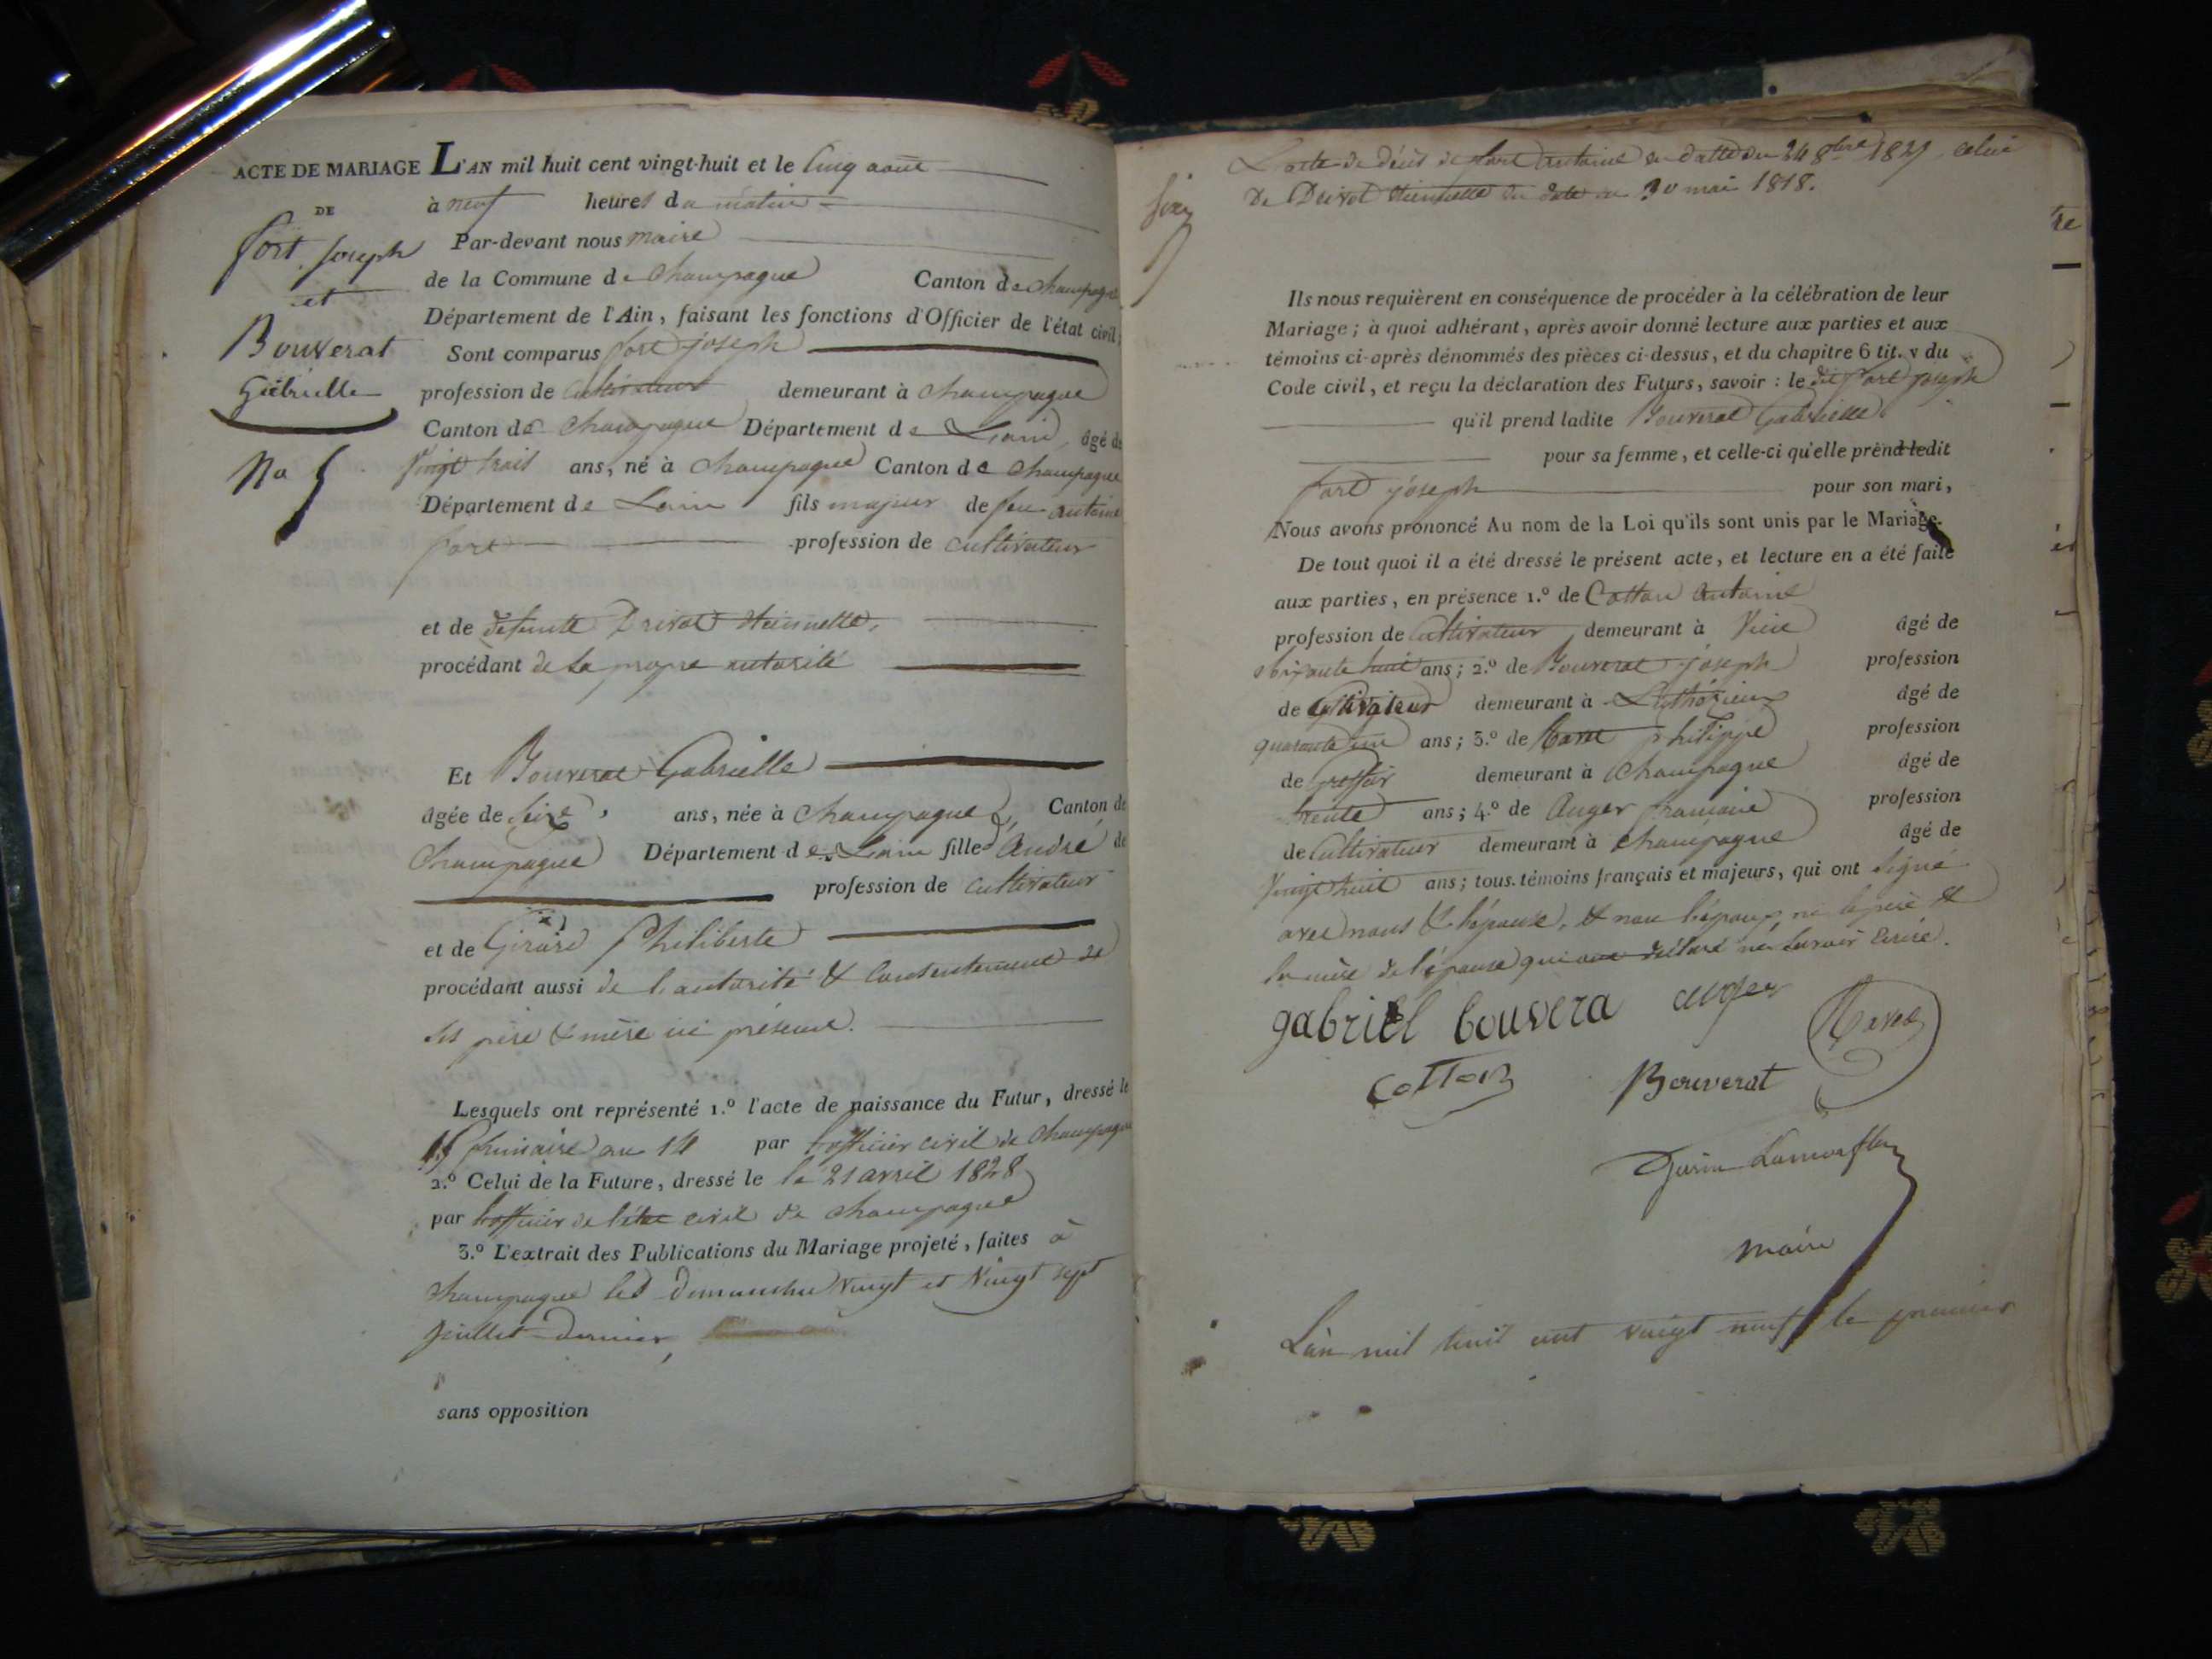 ACTE DE MARIAGE
DE
fort joseph
et
Bouverat
Gabrielle
No 5
L'AN mil huit cent vingt-huit et le cinq aout
à neuf heures du matin
Par-devant nous maire
de la Commune de Champagne Canton de Champagne
Département de l'Ain, faisant les fonctions d'Officier de l'état civil;
Sont comparus fort joseph
profession de Cultivateur demeurant à Champagne
Canton de Champagne Département de Lain, âgé de
vingt trois ans, né à Champagne Canton de Champagne
Département de Lain fils majeur de feu antoine
fort profession de cultivateur
et de defunte Drivot etiennette,
procédant de sa propre autorité
Et Bouverat Gabrielle
âgée de seize ans, née à Champagne, Canton de
Champagne Département de Lain fille André de
profession de cultivateur
et de Girard Philiberte
procédant aussi de l'autorité & consentement de
ses père & mère ici présens.
Lesquels ont représenté 1.º l'acte de naissance du Futur, dressé le
15 frimaire an 14 par l'officier civil de Champagne
2.º Celui de la Future, dressé le le 21 avril 1828
par l'officier de l'état civil de Champagne
3.º L'extrait des Publications du Mariage projeté, faites à
Champagne les dimanches vingt et vingt sept
juillet dernier,
sans opposition
L'acte de décès de fort antoine en datte du 24 8bre 1827 celui
De Drivot etiennette en date du 30 mai 1818.
Ils nous requièrent en conséquence de procéder à la célébration de leur
Mariage; à quoi adhérant, après avoir donné lecture aux parties et aux
témoins ci-après dénommés des pièces ci-dessus, et du chapitre 6 tit. v du
Code civil, et reçu la déclaration des Futurs, savoir : le dit fort joseph
qu'il prend ladite Bouverat Gabrielle
pour sa femme, et celle-ci qu'elle prend ledit
fort joseph pour son mari,
Nous avons prononcé Au nom de la Loi qu'ils sont unis par le Mariage.
De tout quoi il a été dressé le présent acte, et lecture en a été faite
aux parties, en présence 1.º de Cotton antoine
profession de Cultivateur demeurant à Vieu âgé de
soixante huit ans; 2.º de Bouverat joseph profession
de Cultivateur demeurant à Luthézieu âgé de
quarante un ans; 3.º de philippe profession
de demeurant à Champagne âgé de
trente ans; 4.º de Auger francois profession
de Cultivateur demeurant à Champagne âgé de
vingt huit ans; tous témoins français et majeurs, qui ont signé
avec nous & l'épouse, & non l'époux, ni le père &
la mère de l'épouse qui ont déclaré ne savoir écrire.
gabriel bouvera auger
cotton Bouverat
maire
L'an mil huit cent vingt neuf le premier